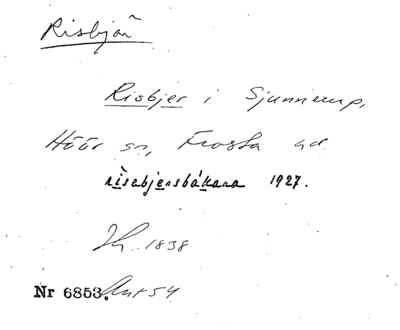 Risbjär
Risbjer i Sjunnerup,
Höör sn, Frosta hd
rìsabjersbákana 1927.
1838
Nr 6853. Ant 54